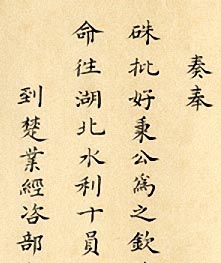 奏奉
硃批好秉公為之欽
命往湖北水利十員
到楚業經咨部